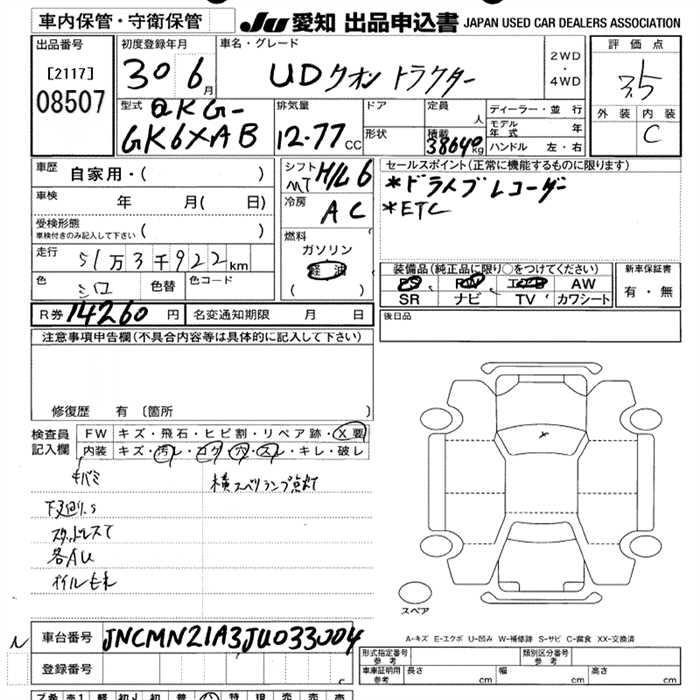 車内保管・守衛保管
JU 愛知 出品申込書 JAPAN USED CAR DEALERS ASSOCIATION
出品番号
[2117]
08507
初度登録年月
30 6月
車名・グレード
UDクオン トラクター
2WD
・
4WD
評価点
3.5
外装 内装
C
型式
QKG-
GK6XAB
排気量
12.77 CC
ドア
形状
定員 人
積載
38640kg
ディーラー・並行
モデル年式 年
ハンドル 左・右
車歴
自家用・( )
車検
年 月( 日)
受検形態
車検付きのみ記入して下さい ( )
走行
51万3千922km
色 シロ 色替 色コード
シフト H/L6
冷房 AC
燃料
ガソリン
軽油
( )
セールスポイント(正常に機能するものに限ります)
*ドライブレコーダー
*ETC
装備品(純正品に限り○をつけてください)
PS PW エアB AW
SR ナビ TV カワシート
新車保証書
有・無
R券 14260円 名変通知期限 月 日
後日品
注意事項申告欄(不具合内容等は具体的に記入して下さい)
修復歴 有〔箇所 〕
検査員
記入欄
FW キズ・飛石・ヒビ割・リペア跡・X要
内装 キズ・汚レ・コゲ・穴・スレ・キレ・破レ
キバミ
横スベリランプ点灯
下廻りS
スタッドレスT
各AU
オイルもれ
スペア
A-キズ E-エクボ U-凹み W-補修跡 S-サビ C-腐食 XX-交換済
車台番号 JNCMN21A3JU033004
登録番号
形式指定番号
参考
類別区分番号
参考
車庫証明用
参考
長さ cm 幅 cm 高さ cm